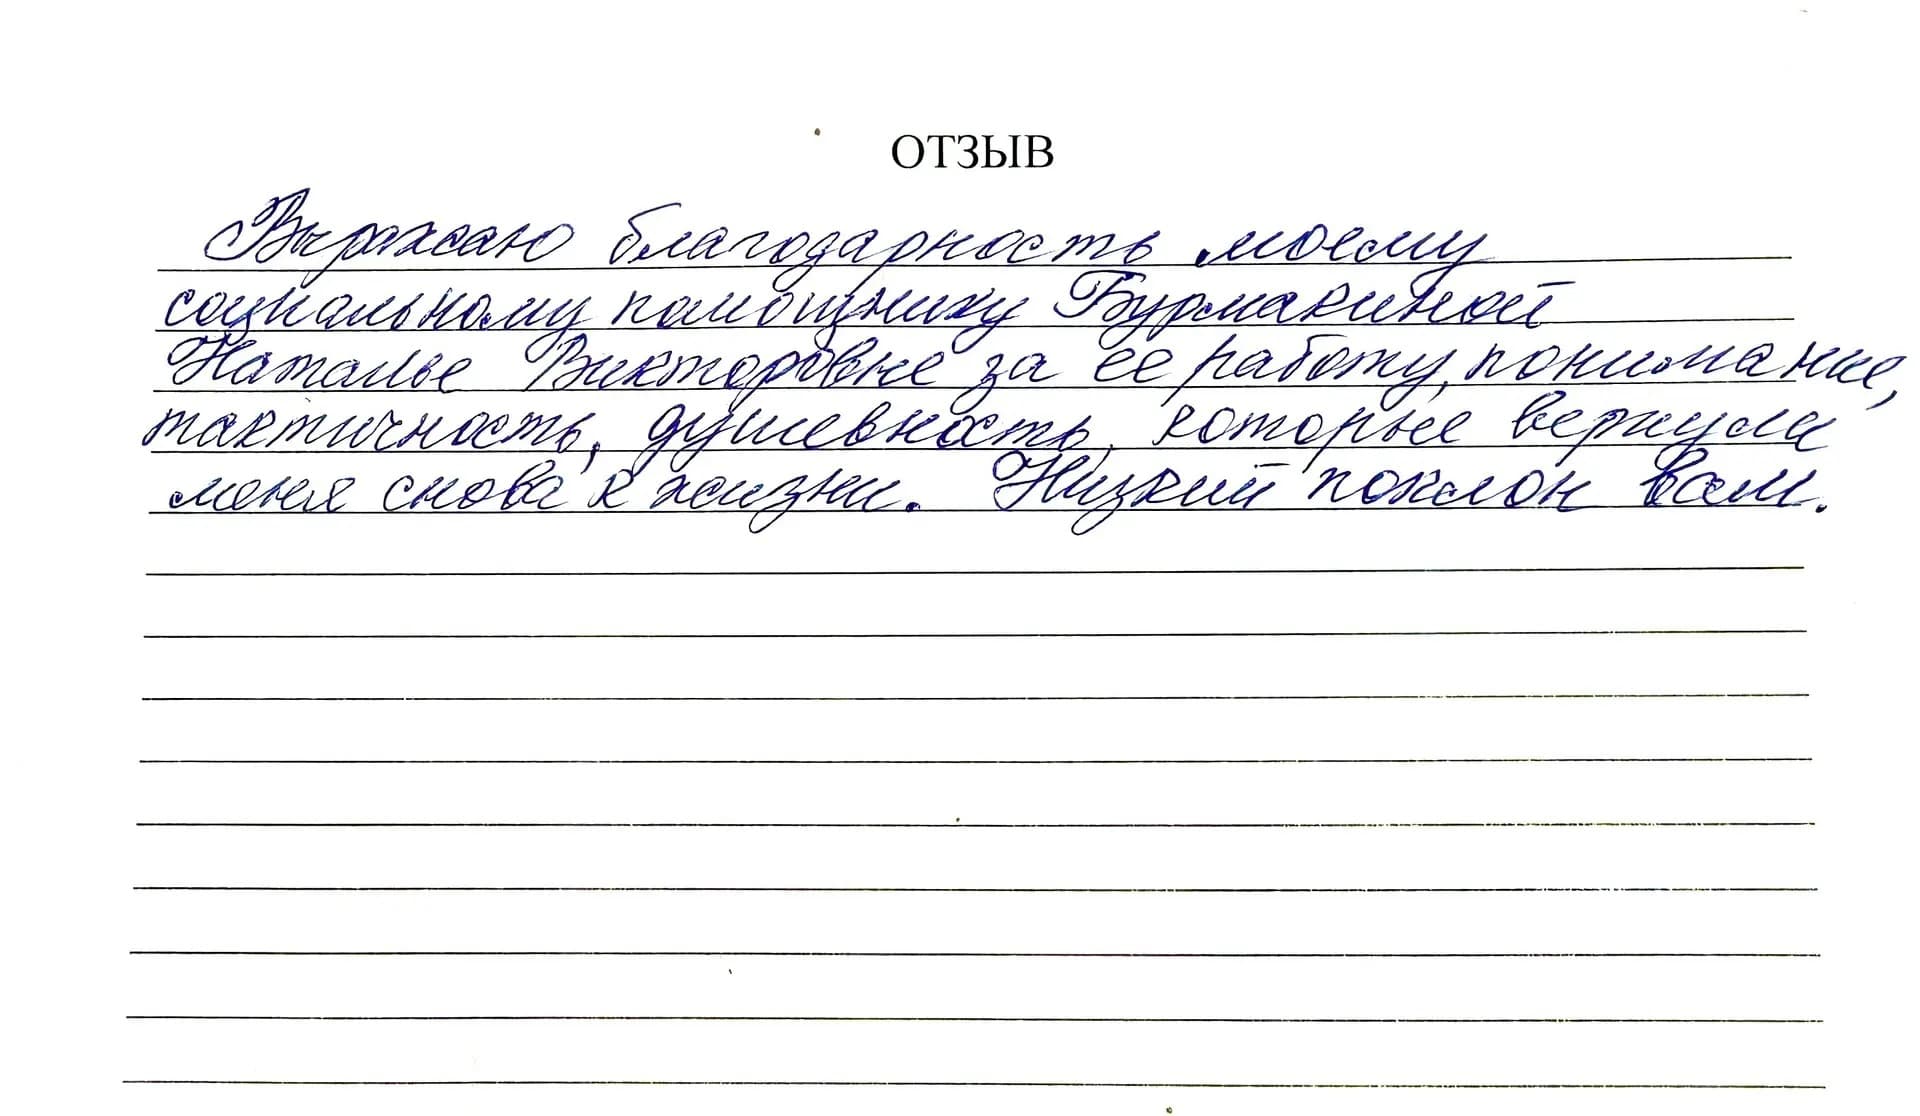 ОТЗЫВ
Выражаю благодарность моему
социальному помощнику Бурмакиной
Наталье Викторовне за ее работу, понимание,
тактичность, душевность, которые вернули
меня снова к жизни. Низкий поклон Вам.